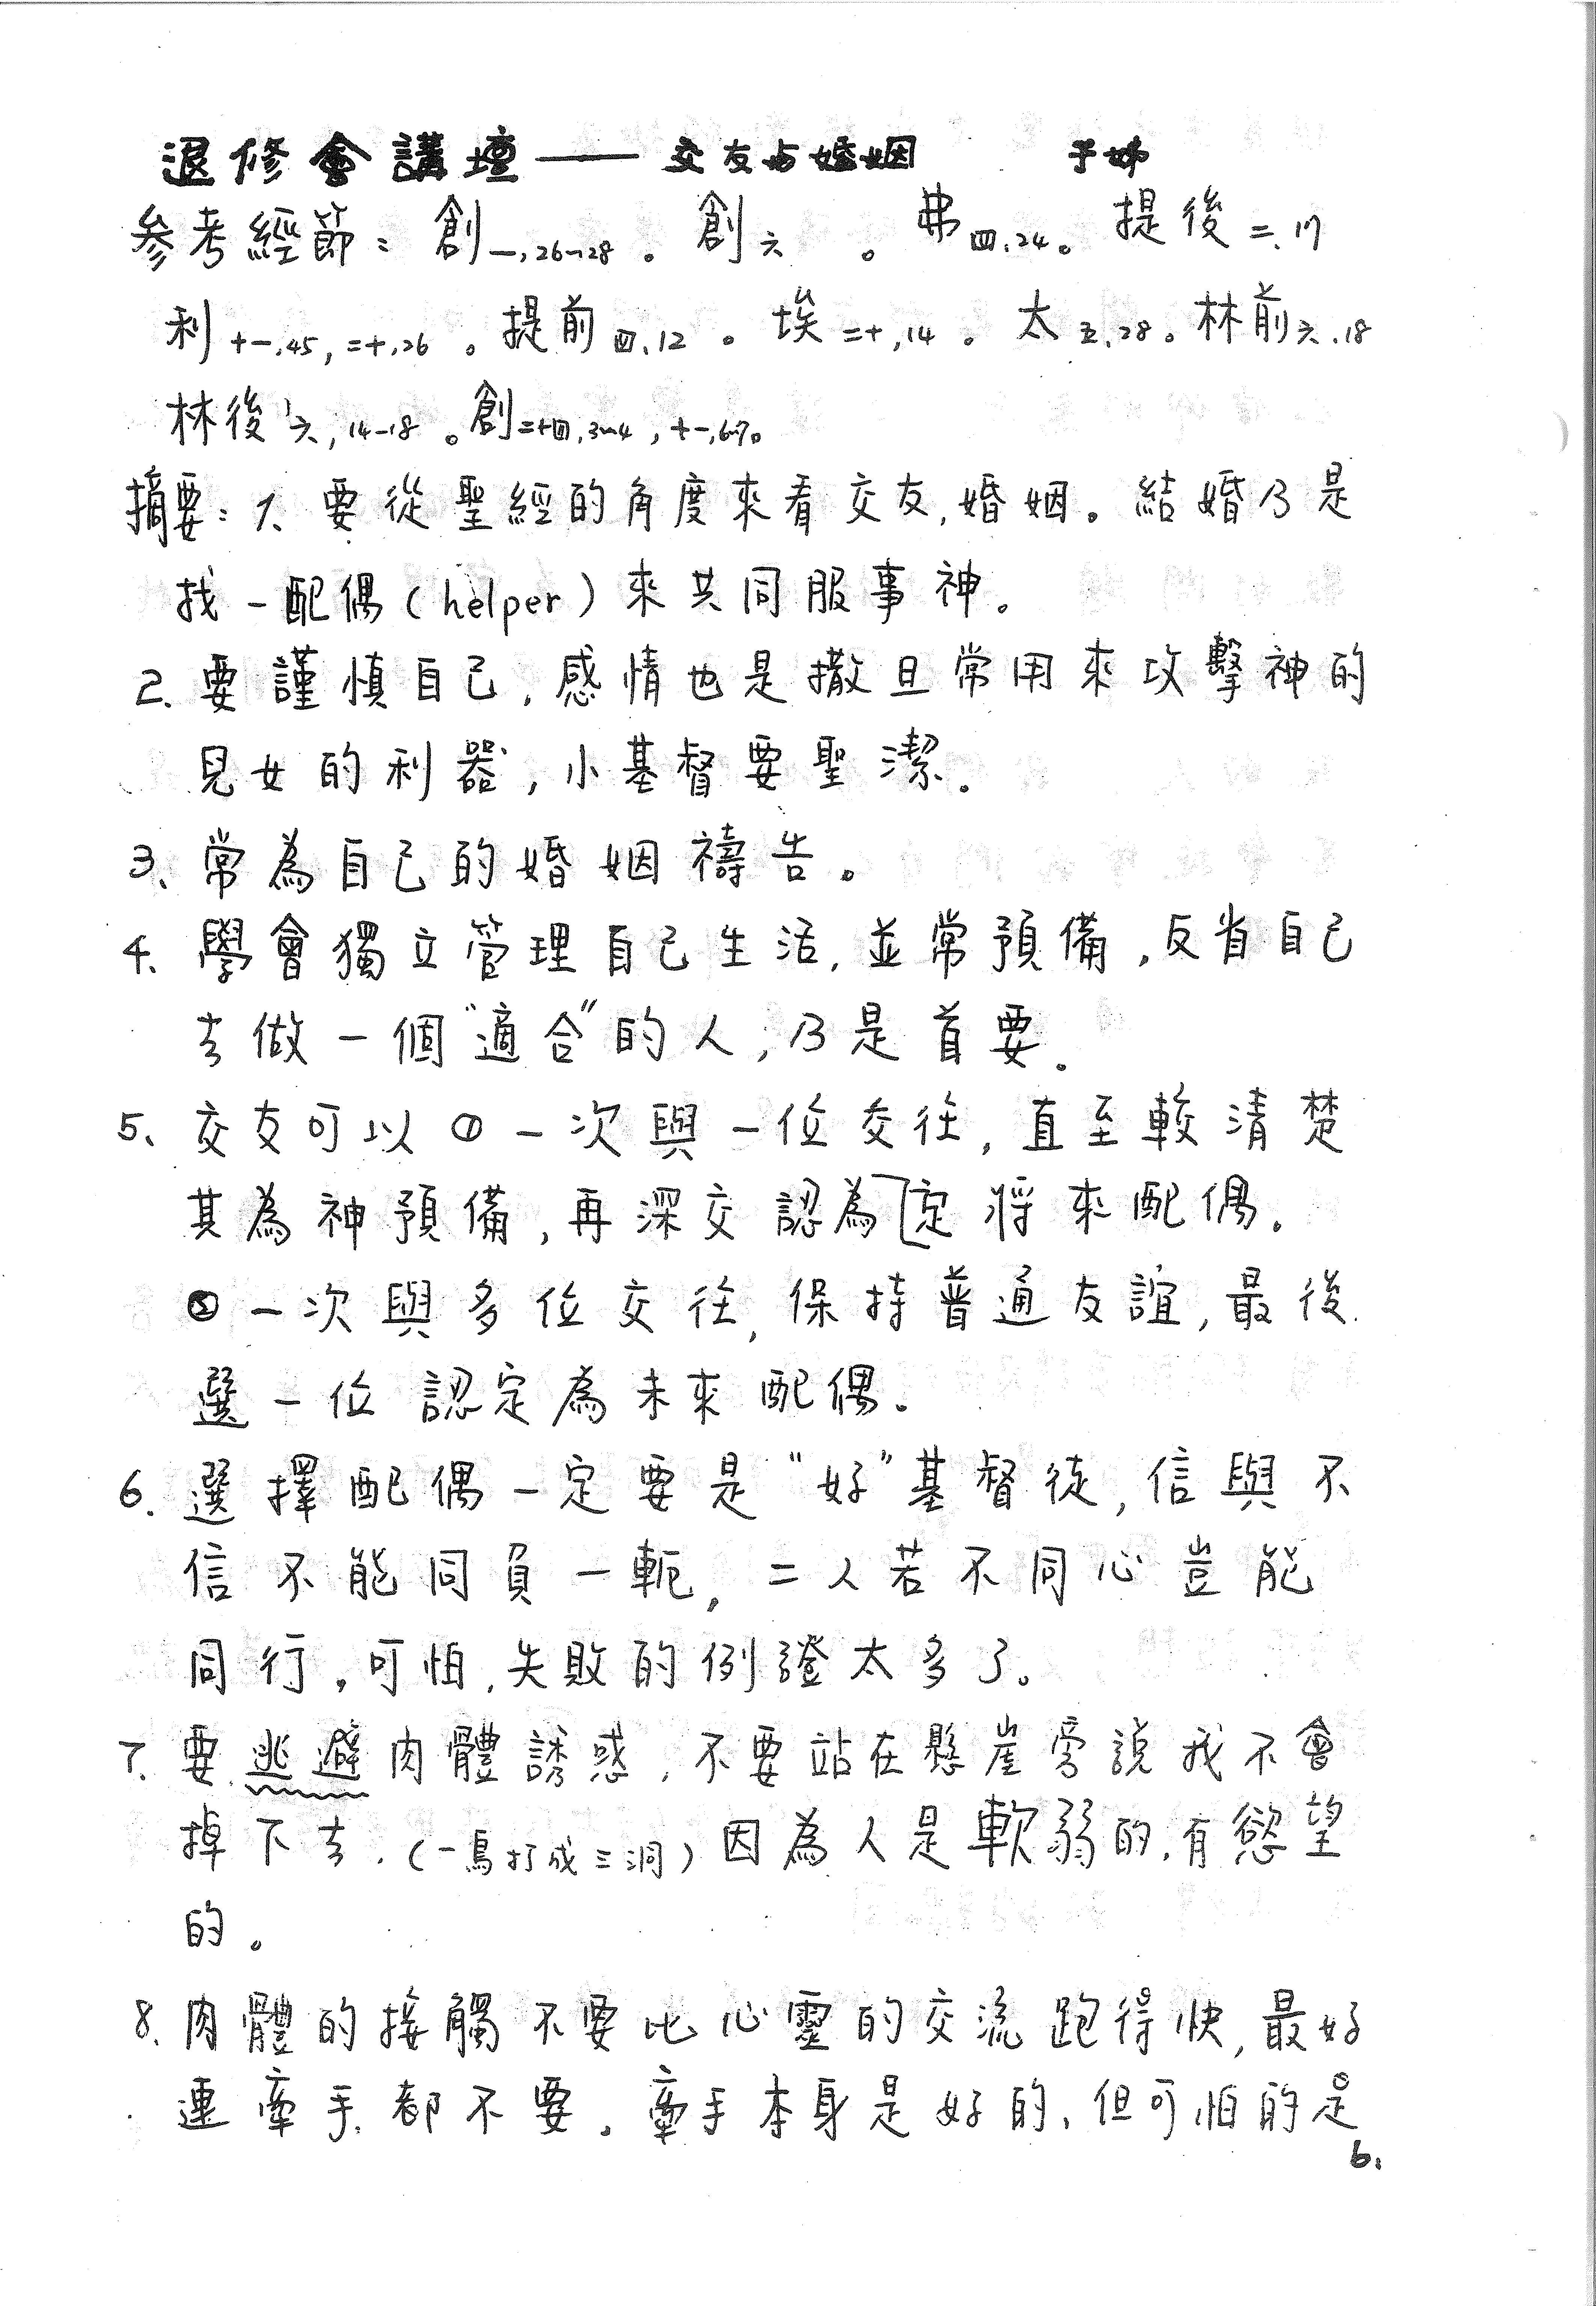 退修會講壇——交友与婚姻 于姊
参考經節：創一,26~28。創六。弗四,24。提後二,17
利十一,45,二十,26。提前四,12。埃二十,14。太五,28。林前六,18
林後六,14-18。創二十四,3~4,十一,6~7。
摘要：1、要從聖經的角度來看交友,婚姻。結婚乃是
找一配偶(helper)來共同服事神。
2、要謹慎自己,感情也是撒旦常用來攻擊神的
兒女的利器,小基督要聖潔.
3、常為自己的婚姻禱告。
4、學會獨立管理自己生活,並常預備,反省自己
去做一個"適合"的人,乃是首要.
5、交友可以①一次與一位交往,直至較清楚
其為神預備,再深交認為定將來配偶。
②一次與多位交往,保持普通友誼,最後
選一位認定為未來配偶。
6.選擇配偶一定要是"好"基督徒,信與不
信不能同負一軛,二人若不同心豈能
同行,可怕,失敗的例證太多了。
7、要逃避肉體誘惑,不要站在懸崖旁說我不會
掉下去.(一鳥打成三洞)因為人是軟弱的,有慾望
的。
8、肉體的接觸不要比心靈的交流跑得快,最好
連牽手都不要。牽手本身是好的,但可怕的是
6.